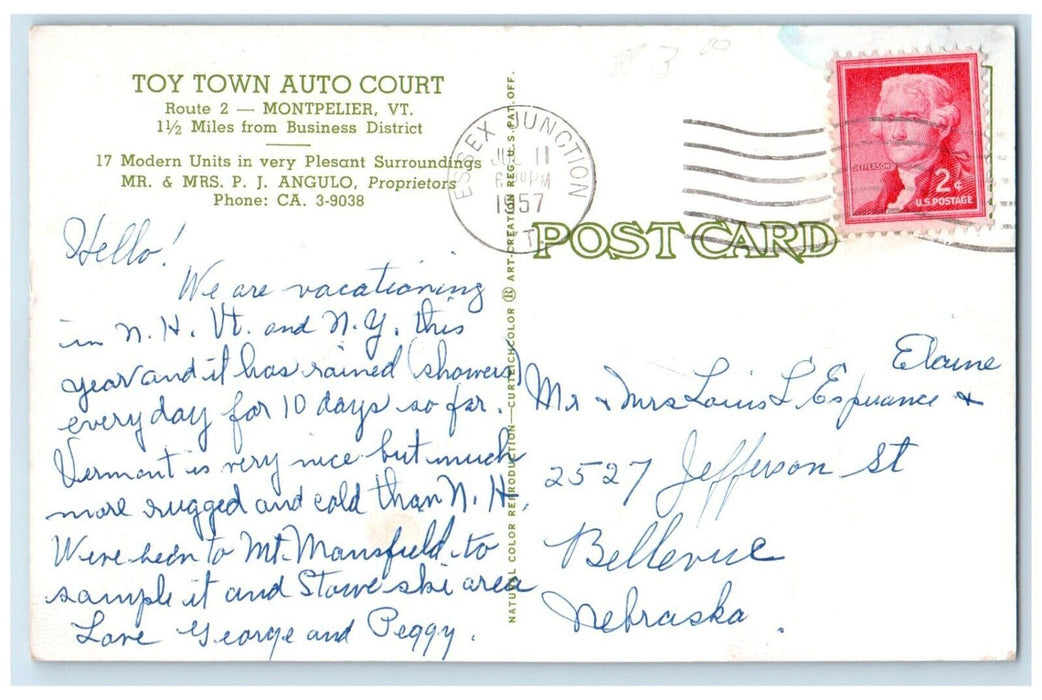 TOY TOWN AUTO COURT
Route 2 — MONTPELIER, VT.
1½ Miles from Business District
17 Modern Units in very Plesant Surroundings
MR. & MRS. P. J. ANGULO, Proprietors
Phone: CA. 3-9038
Hello!
We are vacationing
in N.H. Vt. and N.Y. this
year and it has rained (showers)
every day for 10 days so far.
Vermont is very nice but much
more rugged and cold than N.H.
We've been to Mt. Mansfield to
sample it and Stowe ski area
Love George and Peggy.
NATURAL COLOR REPRODUCTION—CURTEICHCOLOR ® ART-CREATION REG. U.S. PAT. OFF.
$3.00
ESSEX JUNCTION
JUL 11
PM
1957
VT.
JEFFERSON
2¢
U.S. POSTAGE
POST CARD
Elaine
Mr & Mrs Louis L Espuance &
2527 Jefferson St
Bellevue
Nebraska.